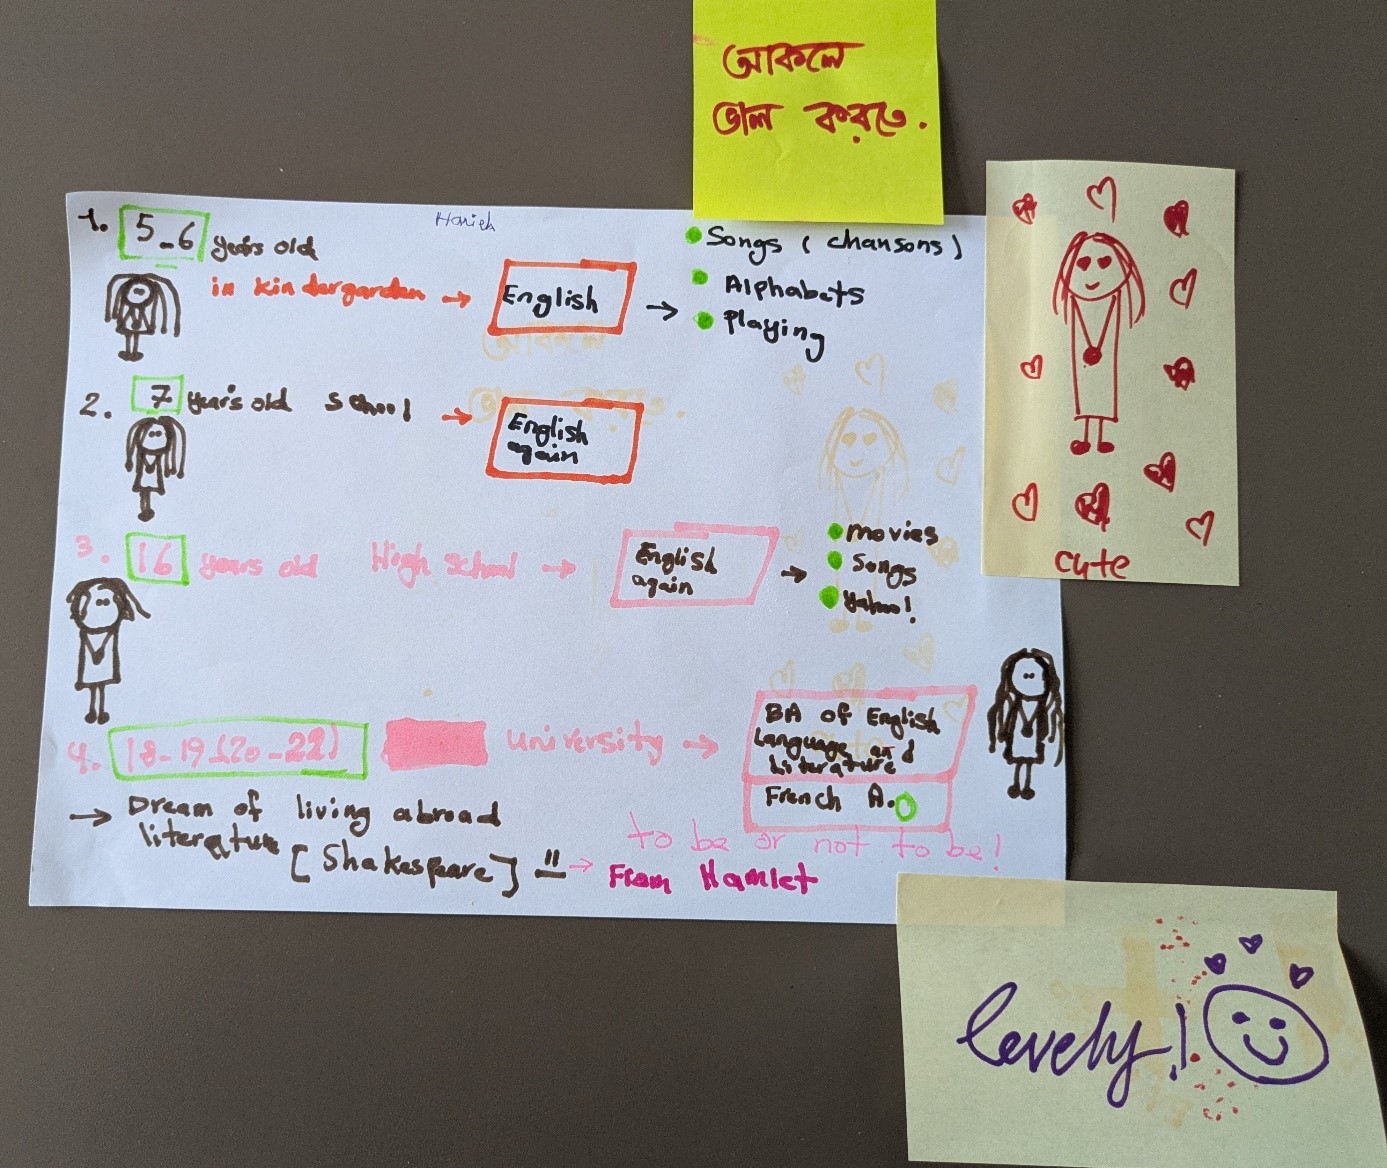 আকলে
ভাল করতে.
Hanieh
1. 5-6 years old
in kindargarden → English →
Songs (chansons)
Alphabets
Playing
2. 7 years old school → English again
3. 16 years old High school → English again →
movies
Songs
Yahoo!
4. 18-19 (20-22) university →
BA of English
Language and
literature
French A.
→ Dream of living abroad
literature [Shakespeare] = →
to be or not to be!
From Hamlet
cute
lovely!